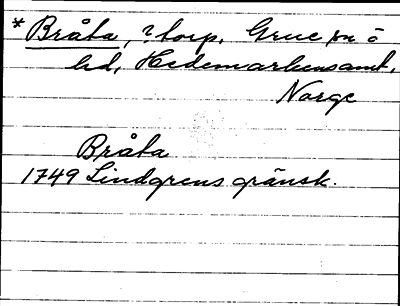 * Bråta, ? torp, Grue sn o
hd, Hedemarkensamt,
Norge
Bråta
1749 Lindgrens gränsk.